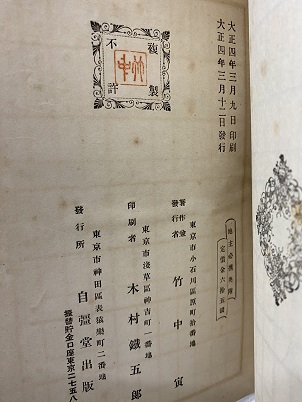 大正四年三月九日印刷
大正四年三月十二日發行
複製
不許
定價金六拾五錢
著作兼
發行者
東京市小石川區原町拾番地
竹中寅
東京市淺草區神吉町一番地
印刷者
木村鐵五郎
東京市神田區表猿樂町二番地
發行所
自彊堂出版
振替貯金口座東京二七五八